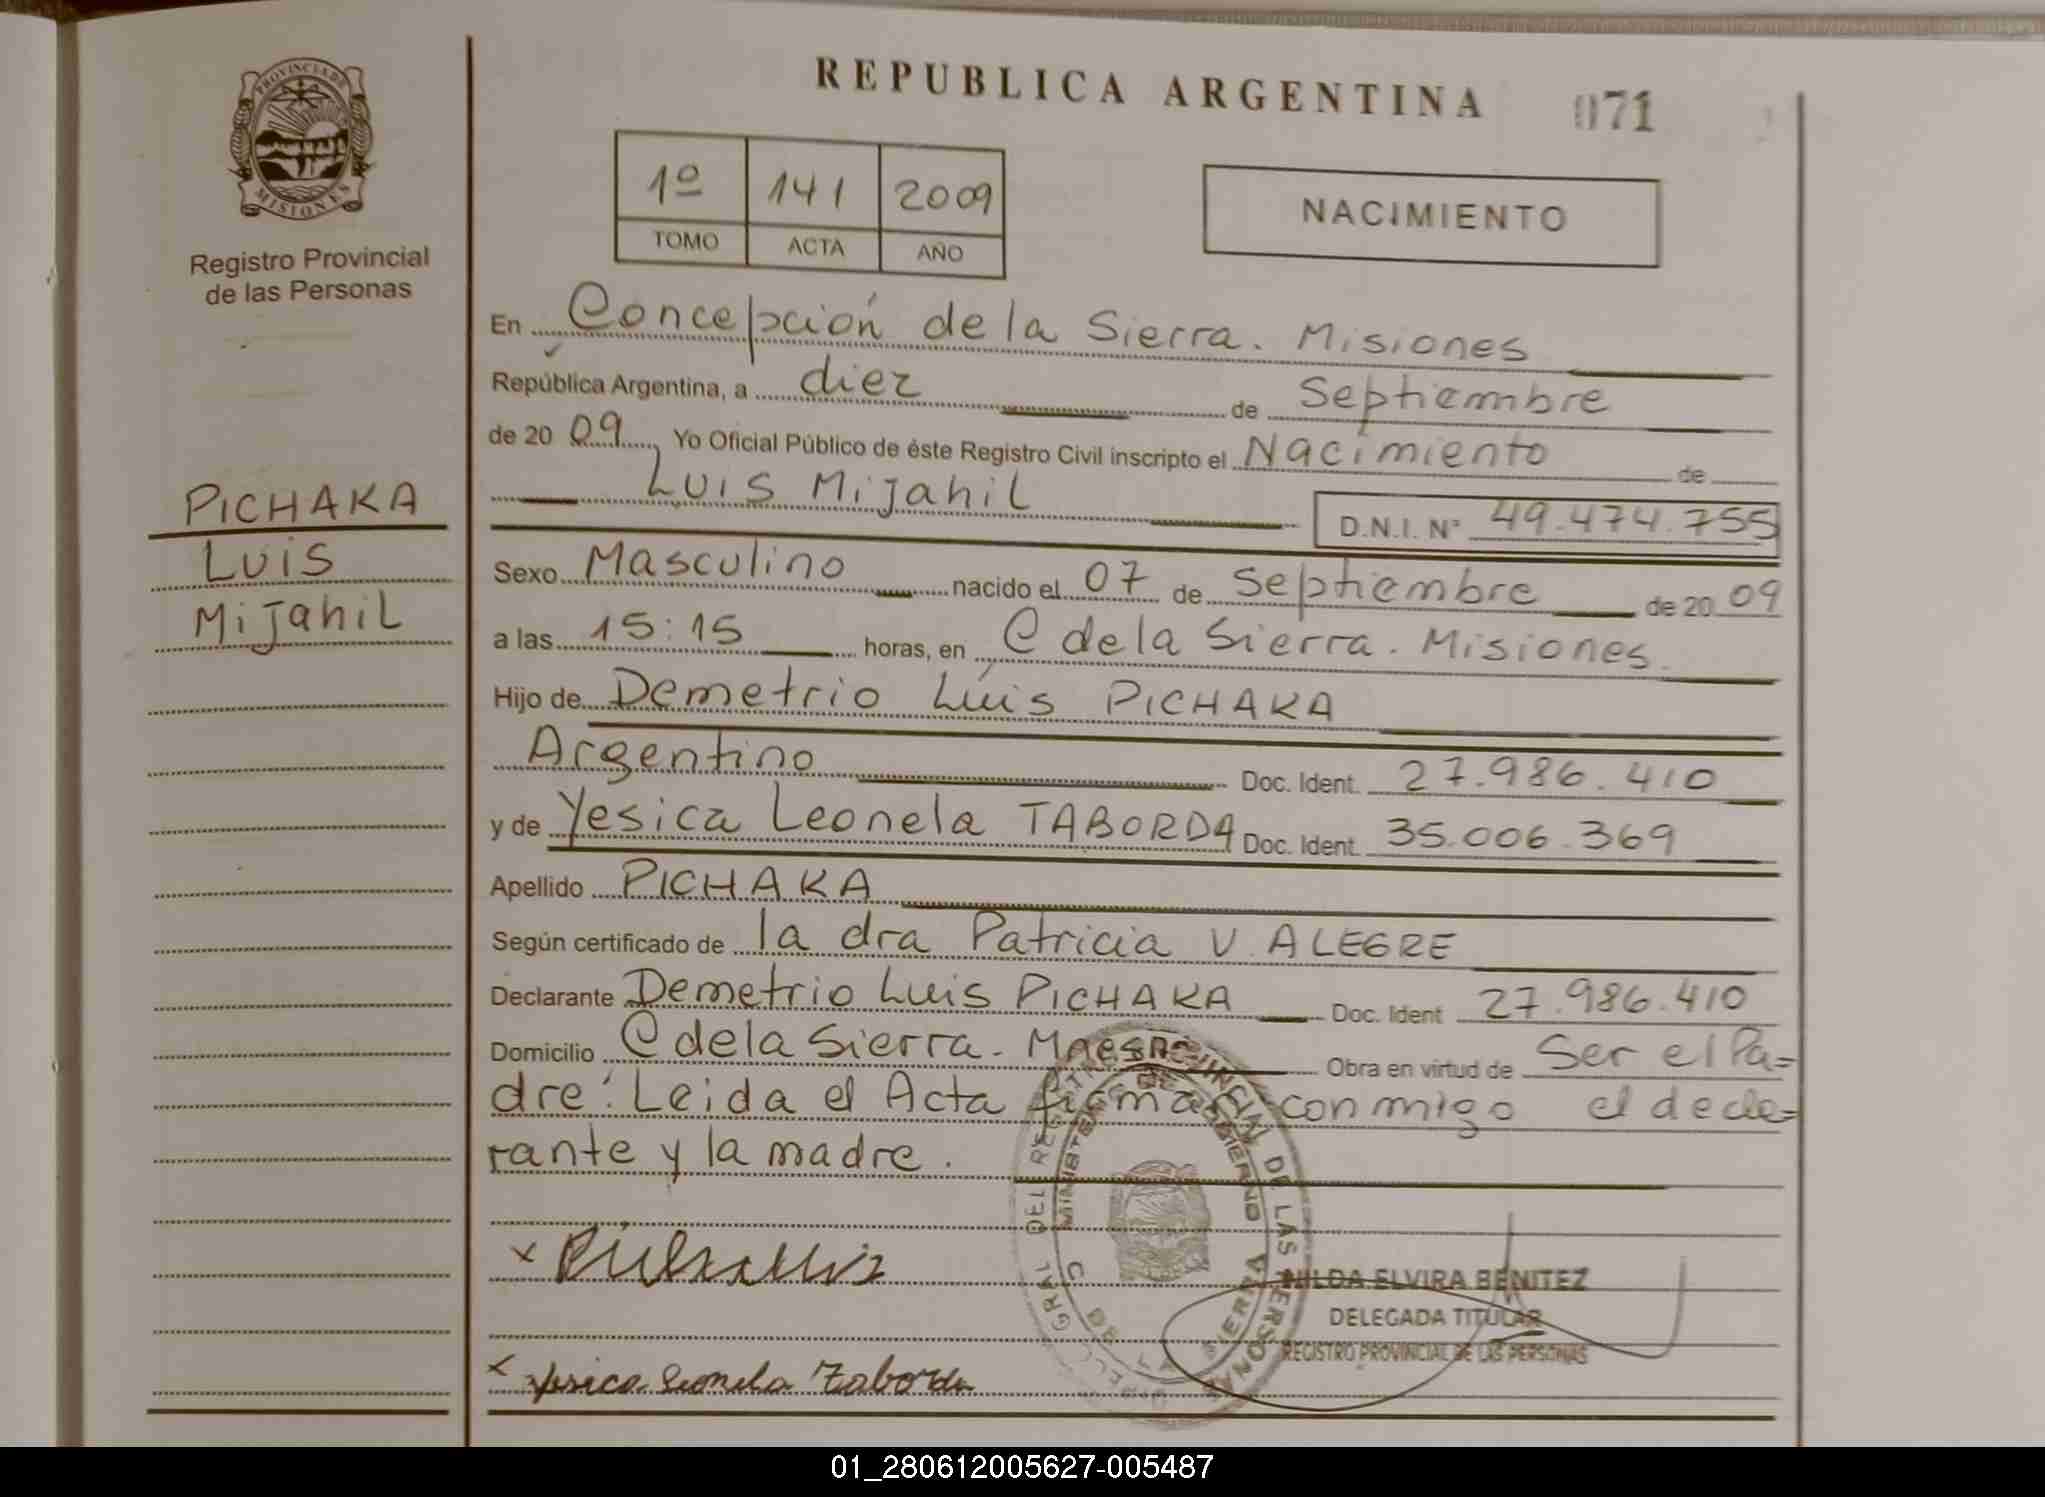 REPUBLICA ARGENTINA 071
PROVINCIA DE
MISIONES
Registro Provincial
de las Personas
1º 141 2009
TOMO ACTA AÑO
NACIMIENTO
PICHAKA
LUIS
MiJahiL
En Concepción de la Sierra. Misiones
República Argentina, a diez de Septiembre
de 20 09 Yo Oficial Público de éste Registro Civil inscripto el Nacimiento de
LUIS MiJahiL D.N.I. N° 49.474.755
Sexo Masculino nacido el 07 de Septiembre de 20 09
a las 15:15 horas, en C de la Sierra. Misiones.
Hijo de Demetrio Luis PICHAKA
Argentino Doc. Ident. 27.986.410
y de Yesica Leonela TABORDA Doc. Ident. 35.006.369
Apellido PICHAKA
Según certificado de la dra Patricia V. ALEGRE
Declarante Demetrio Luis PICHAKA Doc. Ident 27.986.410
Domicilio C de la Sierra. Mnes Obra en virtud de Ser el Pa=
dre. Leida el Acta firman conmigo el decla=
rante y la madre.
x Yesica Leonela Taborda
HILDA ELVIRA BENITEZ
DELEGADA TITULAR
REGISTRO PROVINCIAL DE LAS PERSONAS
01_280612005627-005487